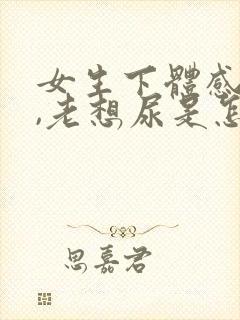 女生下體感
,老想尿是怎
思嘉君